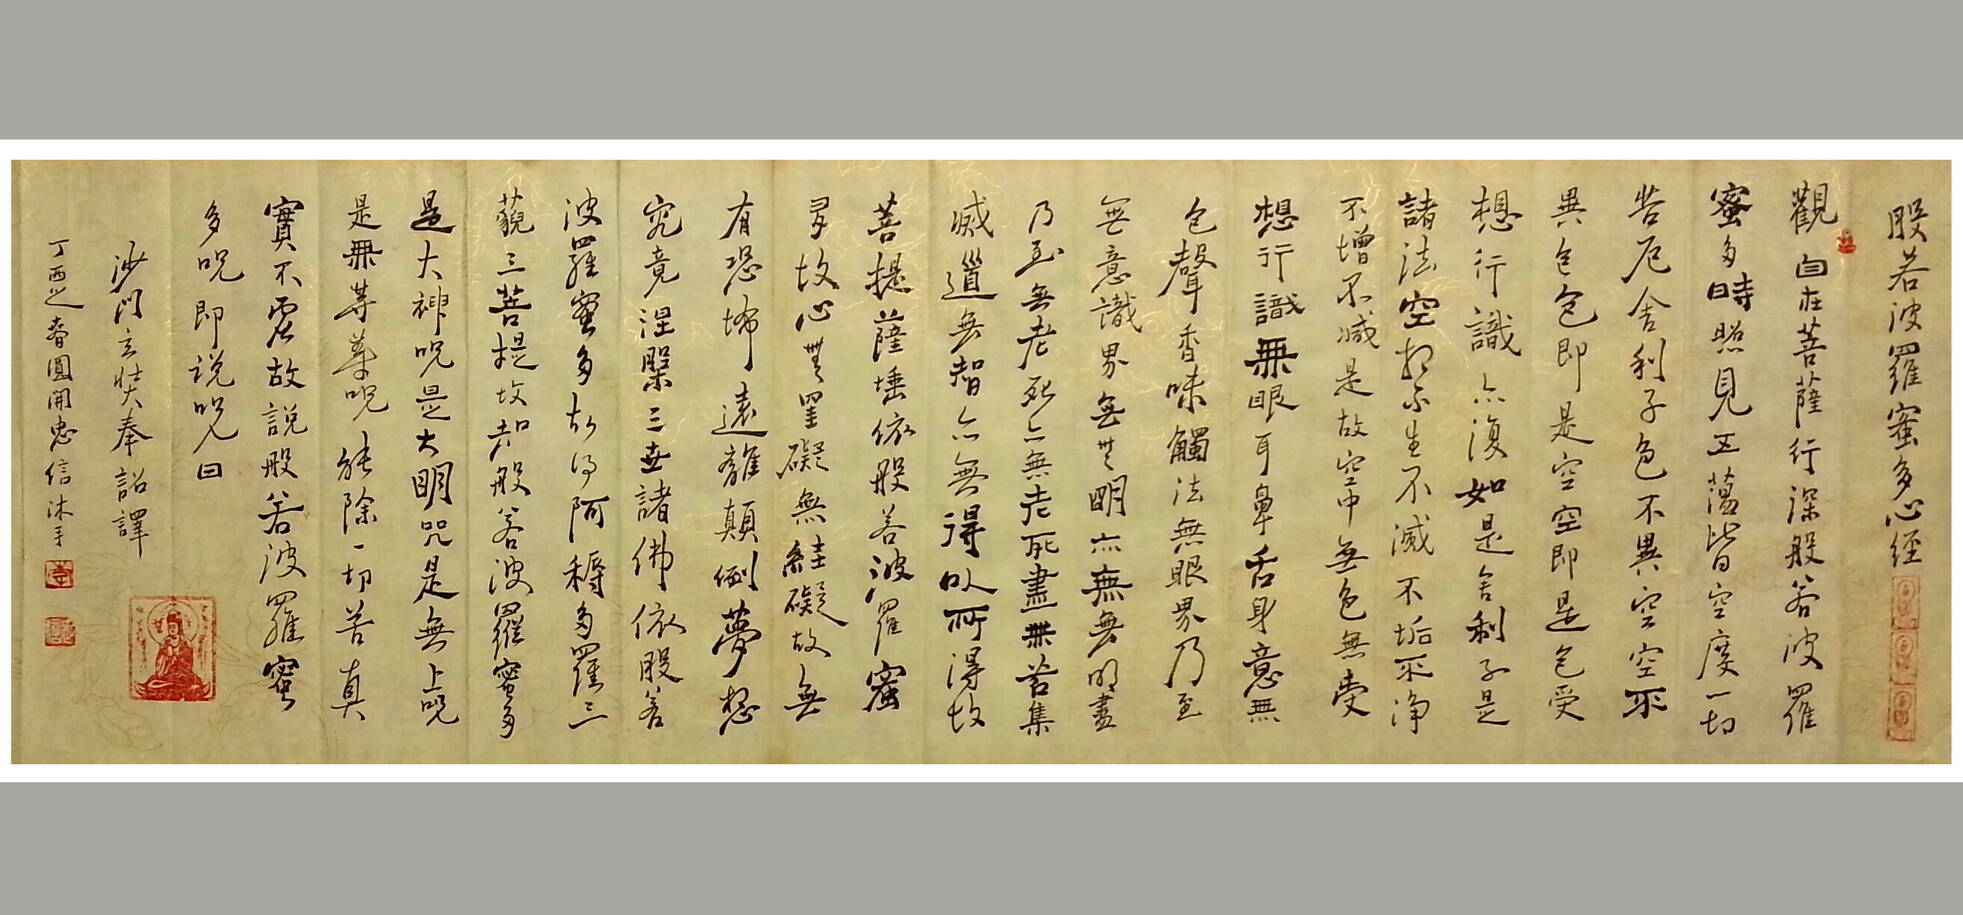 般若波羅蜜多心經
觀自在菩薩行深般若波羅
蜜多時照見五蘊皆空度一切
苦厄舍利子色不異空空不
異色色即是空空即是色受
想行識亦復如是舍利子是
諸法空相不生不滅不垢不淨
不增不減是故空中無色無受
想行識無眼耳鼻舌身意無
色聲香味觸法無眼界乃至
無意識界無無明亦無無明盡
乃至無老死亦無老死盡無苦集
滅道無智亦無得以所得故
菩提薩埵依般若波羅蜜
多故心無罣礙無罣礙故無
有恐怖遠離顛倒夢想
究竟涅槃三世諸佛依般若
波羅蜜多故得阿耨多羅三
藐三菩提故知般若波羅蜜多
是大神咒是大明咒是無上咒
是無等等咒能除一切苦真
實不虛故說般若波羅蜜
多咒即說咒曰
沙門玄奘奉詔譯
丁酉之春圓開忠信沐手